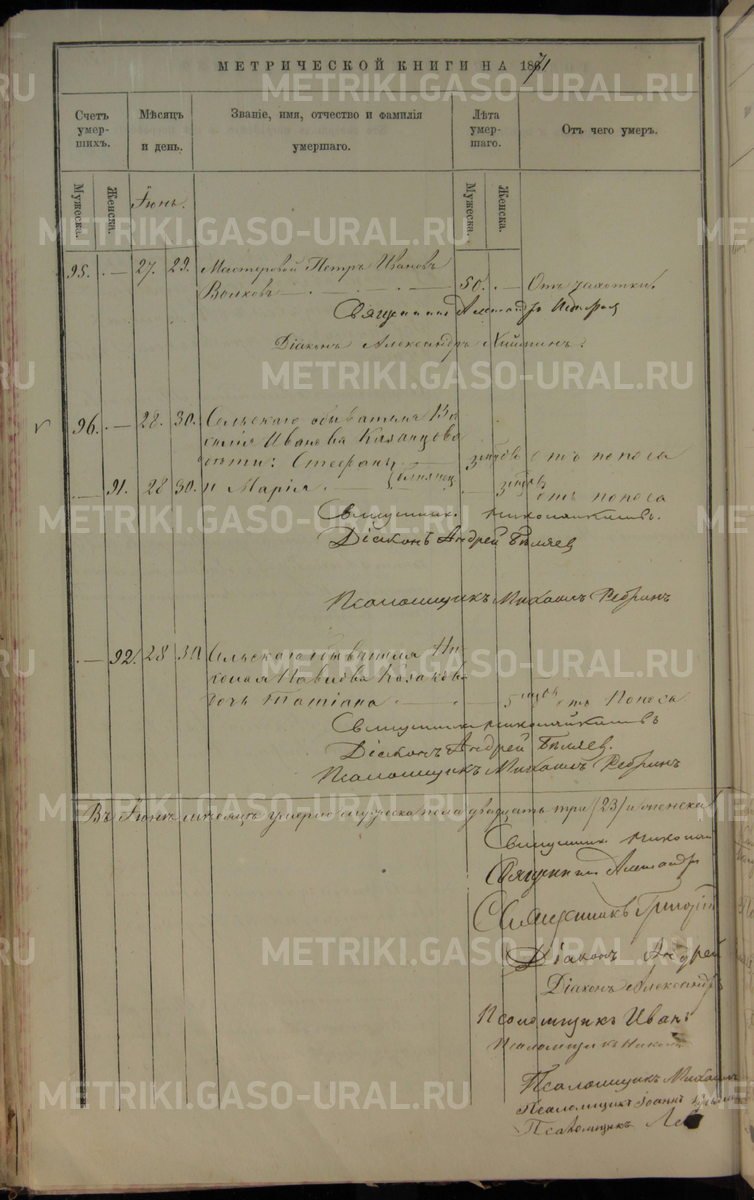 МЕТРИЧЕСКОЙ КНИГИ НА 1871
METRIKI.GASO-URAL.RU
Счетъ умер- шихъ.
Мѣсяцъ и день.
Званіе, имя, отчество и фамилія умершаго.
Лѣта умер- шаго.
Отъ чего умеръ.
Мужеска.
Женска.
Іюнь.
Мужеска.
Женска.
95. — 27. 29. Мастеровой Петръ Ивановъ
Волковъ 50. — Отъ чахотки.
Священникъ Александръ
Діаконъ Александръ
96. — 28. 30. Сельскаго обывателя Ва
силія Иванова Казанцова
дѣти: Стефанъ близнец отъ поноса
91. 28 30. и Марія отъ поноса
Священник.
Діаконъ Андрей Бѣляев
Псаломщикъ Михаилъ Ребринъ
— 92. 28 30 Сельскаго обывателя Ни
колая Павлова Казакова
дочь Татіана 5 отъ Поноса
Священникъ
Діаконъ Андрей Бѣляев.
Псаломщикъ Михаилъ Ребринъ
Въ Іюнѣ мѣсяцѣ умерло мужеска пола двадцать три /23/ и женска
Священник. Николай
Священникъ Александр
Священникъ Григорій
Діаконъ Андрей
Діаконъ Александръ
Псаломщикъ Иванъ
Псаломщикъ Никол
Псаломщикъ Михаилъ
Псаломщикъ Іоаннъ
Псаломщикъ